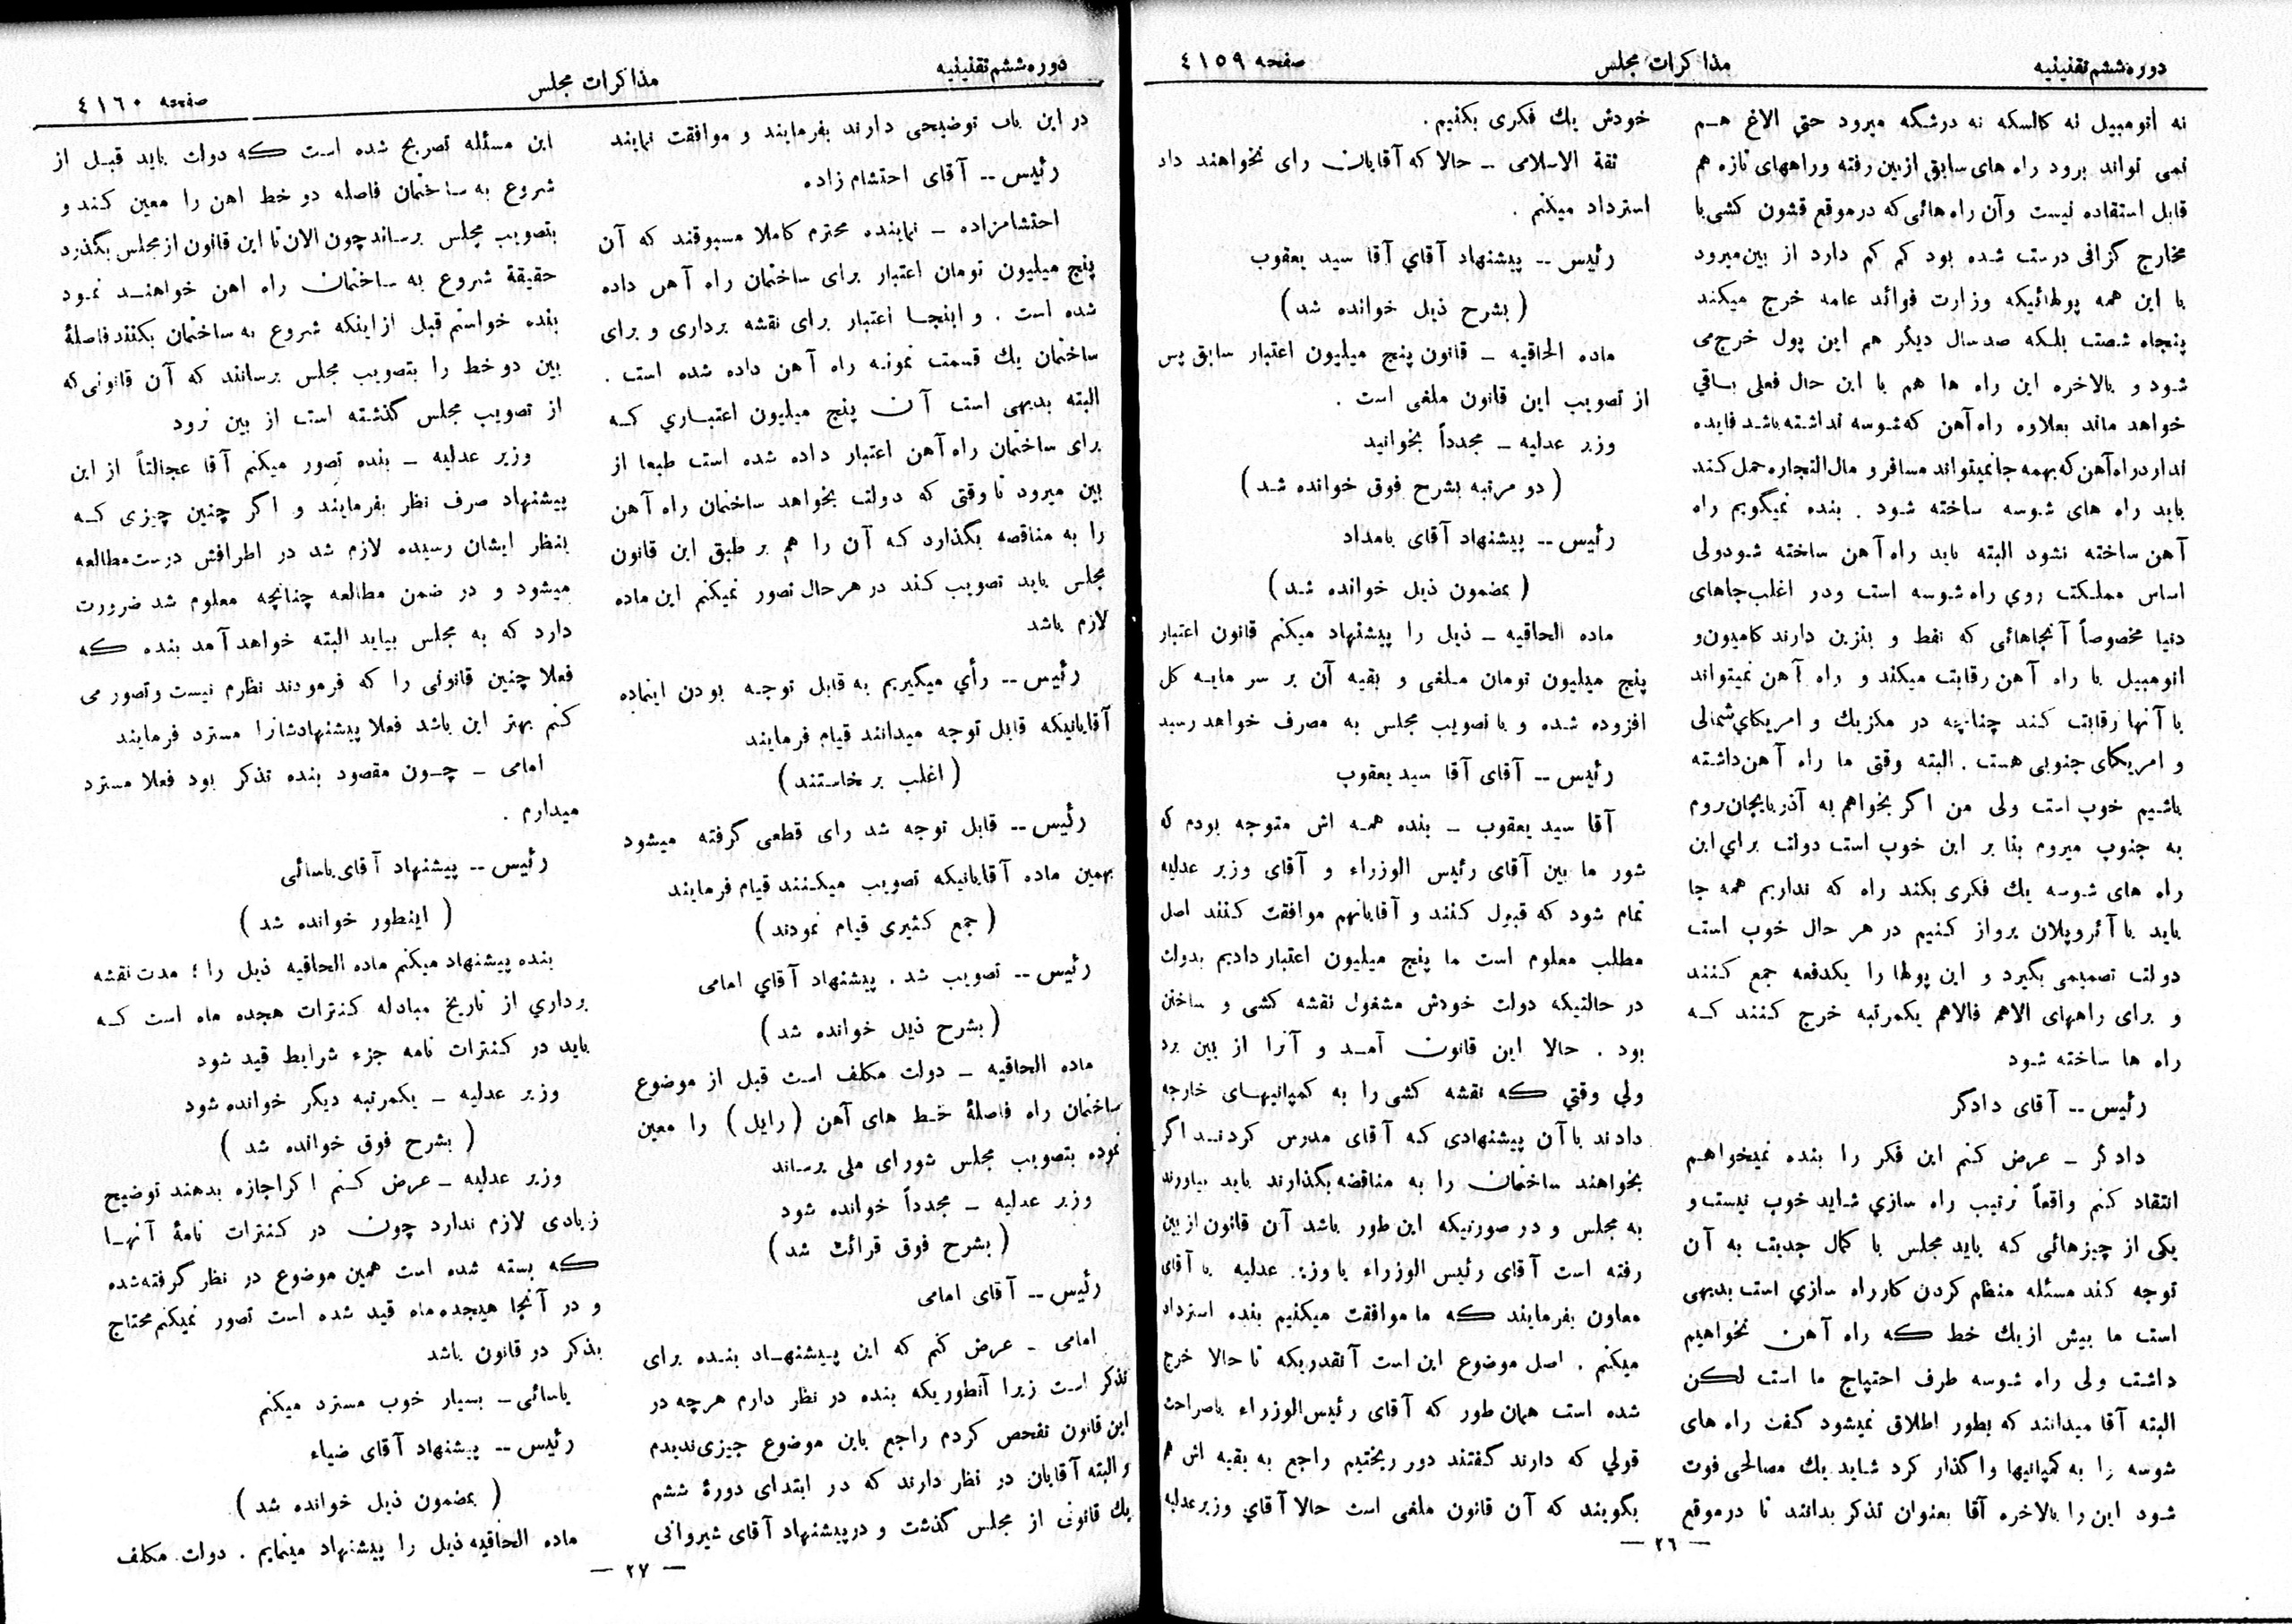 دوره ششم تقنینیه
مذاکرات مجلس
صفحه ٤١٥٩
نه اتومبیل نه کالسکه نه درشگه میرود حتي الاغ هم
نمی تواند برود راه های سابق از بین رفته وراههای تازه هم
قابل استفاده نیست وآن راه هائی که درموقع قشون کشی با
مخارج گزافی درست شده بود کم کم دارد از بین میرود
با این همه پولهائیکه وزارت فوائد عامه خرج میکند
پنجاه شصت بلکه صد سال دیگر هم این پول خرج می
شود و بالاخره این راه ها هم با این حال فعلی باقي
خواهد ماند بعلاوه راه آهن که شوسه نداشته باشد فایده
ندارد راه آهن که بهمه جا نمیتواند مسافر و مال التجاره حمل کند
باید راه های شوسه ساخته شود . بنده نمیگویم راه
آهن ساخته نشود البته باید راه آهن ساخته شود ولی
اساس مملکت روي راه شوسه است ودر اغلب جاهای
دنیا مخصوصاً آنجاهائی که نفط و بنزین دارند کامیون و
اتومبیل با راه آهن رقابت میکند و راه آهن نمیتواند
با آنها رقابت کند چنانچه در مکزیك و امریکاي شمالی
و امریکای جنوبی هست . البته وقتی ما راه آهن داشته
باشیم خوب است ولی من اگر بخواهم به آذربایجان روم
به جنوب میروم بنا بر این خوب است دولت براي این
راه های شوسه یك فکری بکند راه که نداریم همه جا
باید با آئروپلان برواز کنیم در هر حال خوب است
دولت تصمیمی بگیرد و این پولها را یکدفعه جمع کنند
و برای راههای الاهم فالاهم یکمرتبه خرج کنند که
راه ها ساخته شود
رئیس -- آقای دادگر
دادگر - عرض کنم این فکر را بنده نمیخواهم
انتقاد کنم واقعاً ترتیب راه سازي شاید خوب نیست و
یکی از چیزهائی که باید مجلس با کمال جدیت به آن
توجه کند مسئله منظم کردن کار راه سازي است بدیهی
است ما بیش از یك خط که راه آهن نخواهیم
داشت ولی راه شوسه طرف احتیاج ما است لکن
البته آقا میدانند که بطور اطلاق نمیشود گفت راه های
شوسه را به کمپانیها واگذار کرد شاید یك مصالحی فوت
شود این را بالاخره آقا بعنوان تذکر بدانند تا درموقع
خودش یك فکری بکنیم .
ثقة الاسلامی -- حالا که آقایان رای نخواهند داد
استرداد میکنم .
رئیس -- پیشنهاد آقاي آقا سید یعقوب
( بشرح ذیل خوانده شد )
ماده الحاقیه - قانون پنج میلیون اعتبار سابق پس
از تصویب این قانون ملغی است .
وزیر عدلیه - مجدداً بخوانید
( دو مرتبه بشرح فوق خوانده شد )
رئیس -- پیشنهاد آقای بامداد
( بمضمون ذیل خوانده شد )
ماده الحاقیه - ذیل را پیشنهاد میکنم قانون اعتبار
پنج میلیون تومان ملغی و بقیه آن بر سر مایه کل
افزوده شده و با تصویب مجلس به مصرف خواهد رسید
رئیس -- آقای آقا سید یعقوب
آقا سید یعقوب - بنده همه اش متوجه بودم که
شور ما بین آقای رئیس الوزراء و آقای وزیر عدلیه
تمام شود که قبول کنند و آقایانهم موافقت کنند اصل
مطلب معلوم است ما پنج میلیون اعتبار دادیم بدولت
در حالتیکه دولت خودش مشغول نقشه کشی و ساختن
بود . حالا این قانون آمد و آنرا از بین برد
ولي وقتي که نقشه کشی را به کمپانیهای خارجه
دادند با آن پیشنهادی که آقای مدرس کردند اگر
بخواهند ساختمان را به مناقضه بگذارند باید بیاورند
به مجلس و در صورتیکه این طور باشد آن قانون از بین
رفته است آقای رئیس الوزراء یا وزیر عدلیه یا آقای
معاون بفرمایند که ما موافقت میکنیم بنده استرداد
میکنم . اصل موضوع این است آنقدریکه تا حالا خرج
شده است همان طور که آقای رئیس الوزراء باصراحت
قولي که دارند گفتند دور ریختیم راجع به بقیه اش هم
بگویند که آن قانون ملغی است حالا آقاي وزیر عدلیه
— ٢٦ —
دوره ششم تقنینیه
مذاکرات مجلس
صفحه ٤١٦٠
در این باب توضیحی دارند بفرمایند و موافقت نمایند
رئیس -- آقای احتشام زاده
احتشامزاده - نماینده محترم کاملا مسبوقند که آن
پنج میلیون تومان اعتبار برای ساختمان راه آهن داده
شده است . و اینجا اعتبار برای نقشه برداری و برای
ساختمان یك قسمت نمونه راه آهن داده شده است .
البته بدیهی است آن پنج میلیون اعتباري که
برای ساختمان راه آهن اعتبار داده شده است طبعا از
بین میرود تا وقتی که دولت بخواهد ساختمان راه آهن
را به مناقصه بگذارد که آن را هم بر طبق این قانون
مجلس باید تصویب کند در هر حال تصور نمیکنم این ماده
لازم باشد
رئیس -- رأي میگیریم به قابل توجه بودن اینماده
آقایانیکه قابل توجه میدانند قیام فرمایند
( اغلب بر خاستند )
رئیس -- قابل توجه شد رای قطعی گرفته میشود
بهمین ماده آقایانیکه تصویب میکنند قیام فرمایند
( جمع کثیری قیام نمودند )
رئیس -- تصویب شد . پیشنهاد آقاي امامی
( بشرح ذیل خوانده شد )
ماده الحاقیه - دولت مکلف است قبل از موضوع
ساختمان راه فاصلهٔ خط های آهن ( رایل ) را معین
نموده بتصویب مجلس شورای ملی برساند
وزیر عدلیه - مجدداً خوانده شود
( بشرح فوق قرائت شد )
رئیس -- آقای امامی
امامی - عرض کنم که این پیشنهاد بنده برای
تذکر است زیرا آنطوریکه بنده در نظر دارم هرچه در
این قانون تفحص کردم راجع باین موضوع چیزی ندیدم
و البته آقایان در نظر دارند که در ابتدای دورهٔ ششم
یك قانونی از مجلس گذشت و در پیشنهاد آقای شیروانی
این مسئله تصریح شده است که دولت باید قبل از
شروع به ساختمان فاصله دو خط اهن را معین کند و
بتصویب مجلس برساند چون الان تا این قانون از مجلس بگذرد
حقیقة شروع به ساختمان راه اهن خواهند نمود
بنده خواستم قبل از اینکه شروع به ساختمان بکنند فاصلهٔ
بین دو خط را بتصویب مجلس برسانند که آن قانونی که
از تصویب مجلس گذشته است از بین نرود
وزیر عدلیه - بنده تصور میکنم آقا عجالتاً از این
پیشنهاد صرف نظر بفرمایند و اگر چنین چیزی که
بنظر ایشان رسیده لازم شد در اطرافش درست مطالعه
میشود و در ضمن مطالعه چنانچه معلوم شد ضرورت
دارد که به مجلس بیاید البته خواهد آمد بنده که
فعلا چنین قانونی را که فرمودند نظارم نیست وتصور می
کنم بهتر این باشد فعلا پیشنهادشانرا مسترد فرمایند
امامی - چون مقصود بنده تذکر بود فعلا مسترد
میدارم .
رئیس -- پیشنهاد آقای یاسائی
( اینطور خوانده شد )
بنده پیشنهاد میکنم ماده الحاقیه ذیل را : مدت نقشه
برداري از تاریخ مبادله کنترات هجده ماه است که
باید در کنترات نامه جزء شرایط قید شود
وزیر عدلیه - یکمرتبه دیگر خوانده شود
( بشرح فوق خوانده شد )
وزیر عدلیه - عرض کنم اگر اجازه بدهند توضیح
زیادی لازم ندارد چون در کنترات نامهٔ آنها
که بسته شده است همین موضوع در نظر گرفته شده
و در آنجا هیجده ماه قید شده است تصور نمیکنم محتاج
بذکر در قانون باشد
یاسائی - بسیار خوب مسترد میکنم
رئیس -- پیشنهاد آقای ضیاء
( بمضمون ذیل خوانده شد )
ماده الحاقیه ذیل را پیشنهاد مینمایم . دولت مکلف
— ٢٧ —